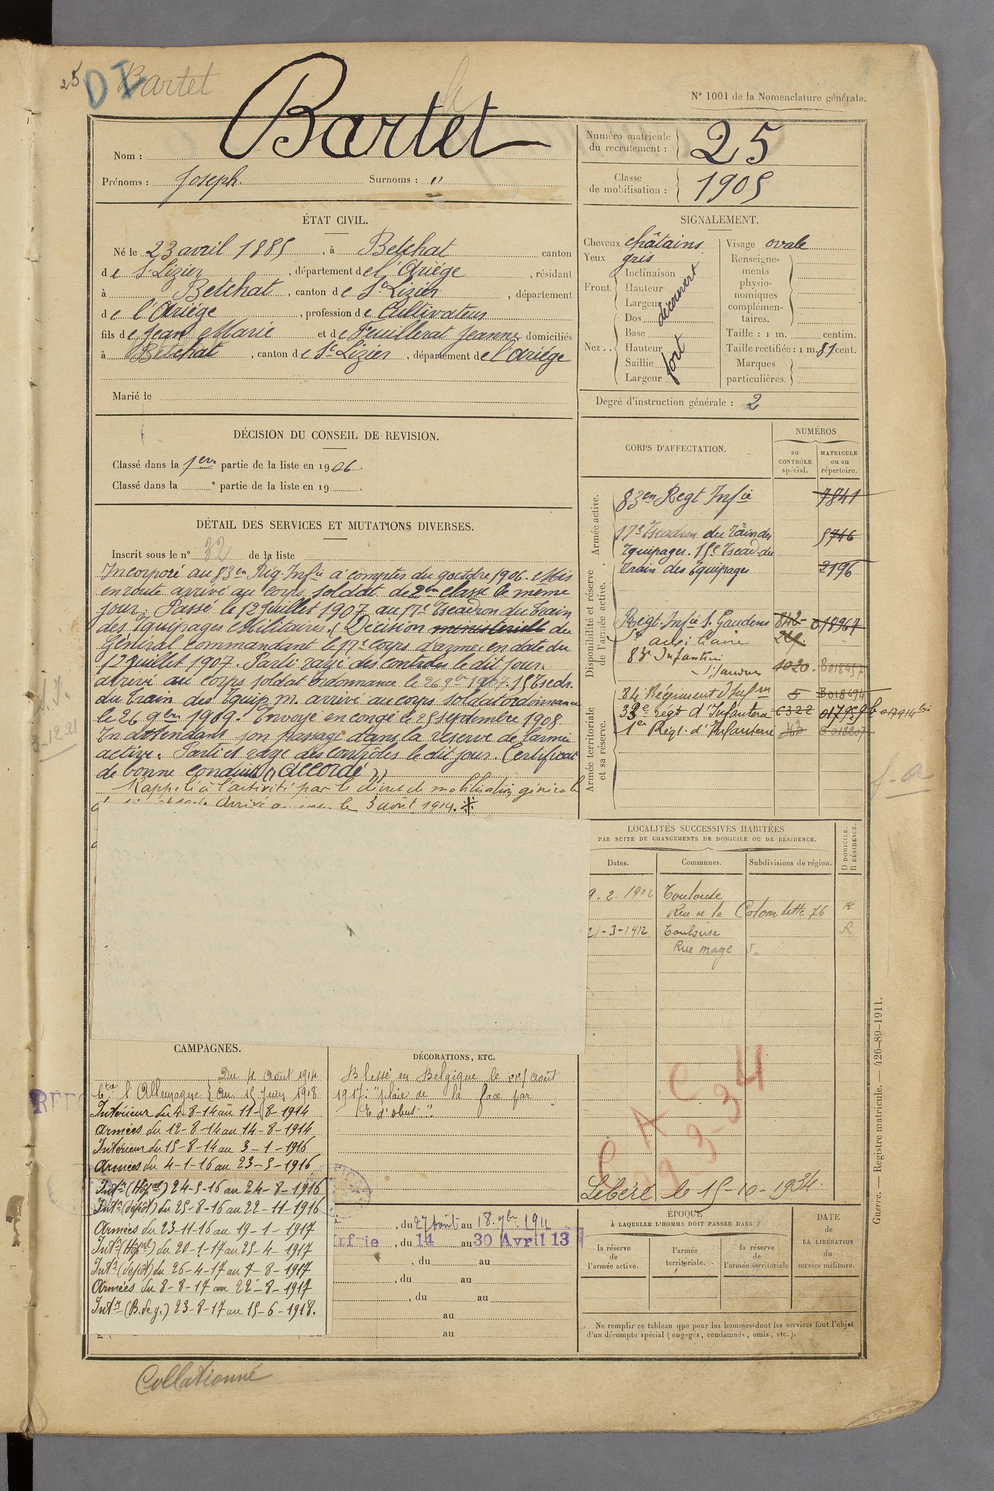 25
Bartet
N° 1001 de la Nomenclature générale.
Nom : Bartet
Prénoms : Joseph. Surnoms : "
Numéro matricule du recrutement : 25
Classe de mobilisation : 1905
ÉTAT CIVIL.
Né le 23 avril 1885, à Betchat canton
de St Lizier, département de l'Ariége, résidant
à Betchat, canton de St Lizier, département
de l'Ariége, profession de Cultivateur
fils de Jean Marie et de Feuillerat Jeanne domiciliés
à Betchat, canton de St Lizier, département de l'Ariége
Marié le
SIGNALEMENT.
Cheveux châtains
Yeux gris
Front. Inclinaison
Hauteur
Largeur
découvert
Nez.. Dos
Base
Hauteur
Saillie
Largeur
fort
Visage ovale
Renseigne-
ments
physio-
nomiques
complémen-
taires.
Taille : 1 m. centim.
Taille rectifiée : 1 m. 81 cent.
Marques
particulières.
Degré d'instruction générale : 2
DÉCISION DU CONSEIL DE REVISION.
Classé dans la 1ere partie de la liste en 1906.
Classé dans la ° partie de la liste en 19
DÉTAIL DES SERVICES ET MUTATIONS DIVERSES.
Inscrit sous le n° 32 de la liste
Incorporé au 83em Rég. Infie à compter du 9 octobre 1906. Mis
en route arrivé au corps, soldat de 2me classe le même
jour. Passé le 12 juillet 1907 au 17e Escadron du Train
des Equipages Militaires. (Décision ministerielle du
Général Commandant le 17e corps d'armée en date du
12 juillet 1907. Parti rayé des contrôles le dit jour.
arrivé au corps soldat ordonnance le 26 9bre 1907. 15 Escd.
du Train des Equip. m. arrivé au corps soldat ordonnance
le 26 9bre 1909. Envoyé en congé le 25 septembre 1908
En attendant son passage dans la réserve de l'armée
active. Parti et rayé des contrôles le dit jour. Certificat
de bonne conduite "Accordé"
Rappelé à l'activité par le décret de mobilisation générale
Arrivé au corps le 3 août 1914.
CORPS D'AFFECTATION.
NUMÉROS
au CONTRÔLE spécial.
MATRICULE ou au répertoire.
Armée active.
83em Regt Infie 7841
17e Escadron du Train des 5746
Equipages. 15e Escad. du
Train des Equipages 2196
Disponibilité et réserve de l'armée active.
Regt Infie St Gaudens 018967
83e Infanterie
St Gaudens 1020
Armée territoriale et sa réserve.
34 Régiment d'Infie 5
33e Regt d'Infanterie C322
1er Régt. d'Infanterie
LOCALITÉS SUCCESSIVES HABITÉES
PAR SUITE DE CHANGEMENTS DE DOMICILE OU DE RÉSIDENCE.
Dates. Communes. Subdivisions de région. D DOMICILE. R RÉSIDENCE.
9.2.1912 Toulouse
Rue de la Colombette 76 R
21-3-1912 Toulouse R
Rue mage 5
CAMPAGNES.
Du 4 août 1914
Ctre l'Allemagne au 15 Juin 1918
Intérieur du 4-8-14 au 11-8-1914
Armées du 12-8-14 au 14-8-1914
Intérieur du 15-8-14 au 3-1-1916
Armées du 4-1-16 au 23-5-1916
Intr (Hôpal) 24-5-16 au 24-8-1916
Intr (dépôt) du 25-8-16 au 22-11-1916
Armées du 23-11-16 au 19-1-1917
Intr (Hôpal) du 20-1-17 au 25-4-1917
Intr (dépôt) du 26-4-17 au 7-8-1917
Armées du 8-8-17 au 22-8-1917
Intr (B.deg.) 23-8-17 au 15-6-1918.
DÉCORATIONS, ETC.
Blessé en Belgique le 22 août
1917: "plaie de la face par
Et d'obus."
C A C
29 3-34
Libéré le 15-10-1934.
, du 27 août au 18 7bre 1911
Infrie, du 14 au 30 Avril 13
, du au
, du au
, du au
au
au
ÉPOQUE
À LAQUELLE L'HOMME DOIT PASSER DANS :
la réserve de l'armée active.
l'armée territoriale.
la réserve de l'armée territoriale
DATE de LA LIBÉRATION du service militaire.
Ne remplir ce tableau que pour les hommes dont les services font l'objet
d'un décompte spécial (engagés, condamnés, omis, etc.).
Guerre. — Registre matricule. — 426-89-1911.
Collationné